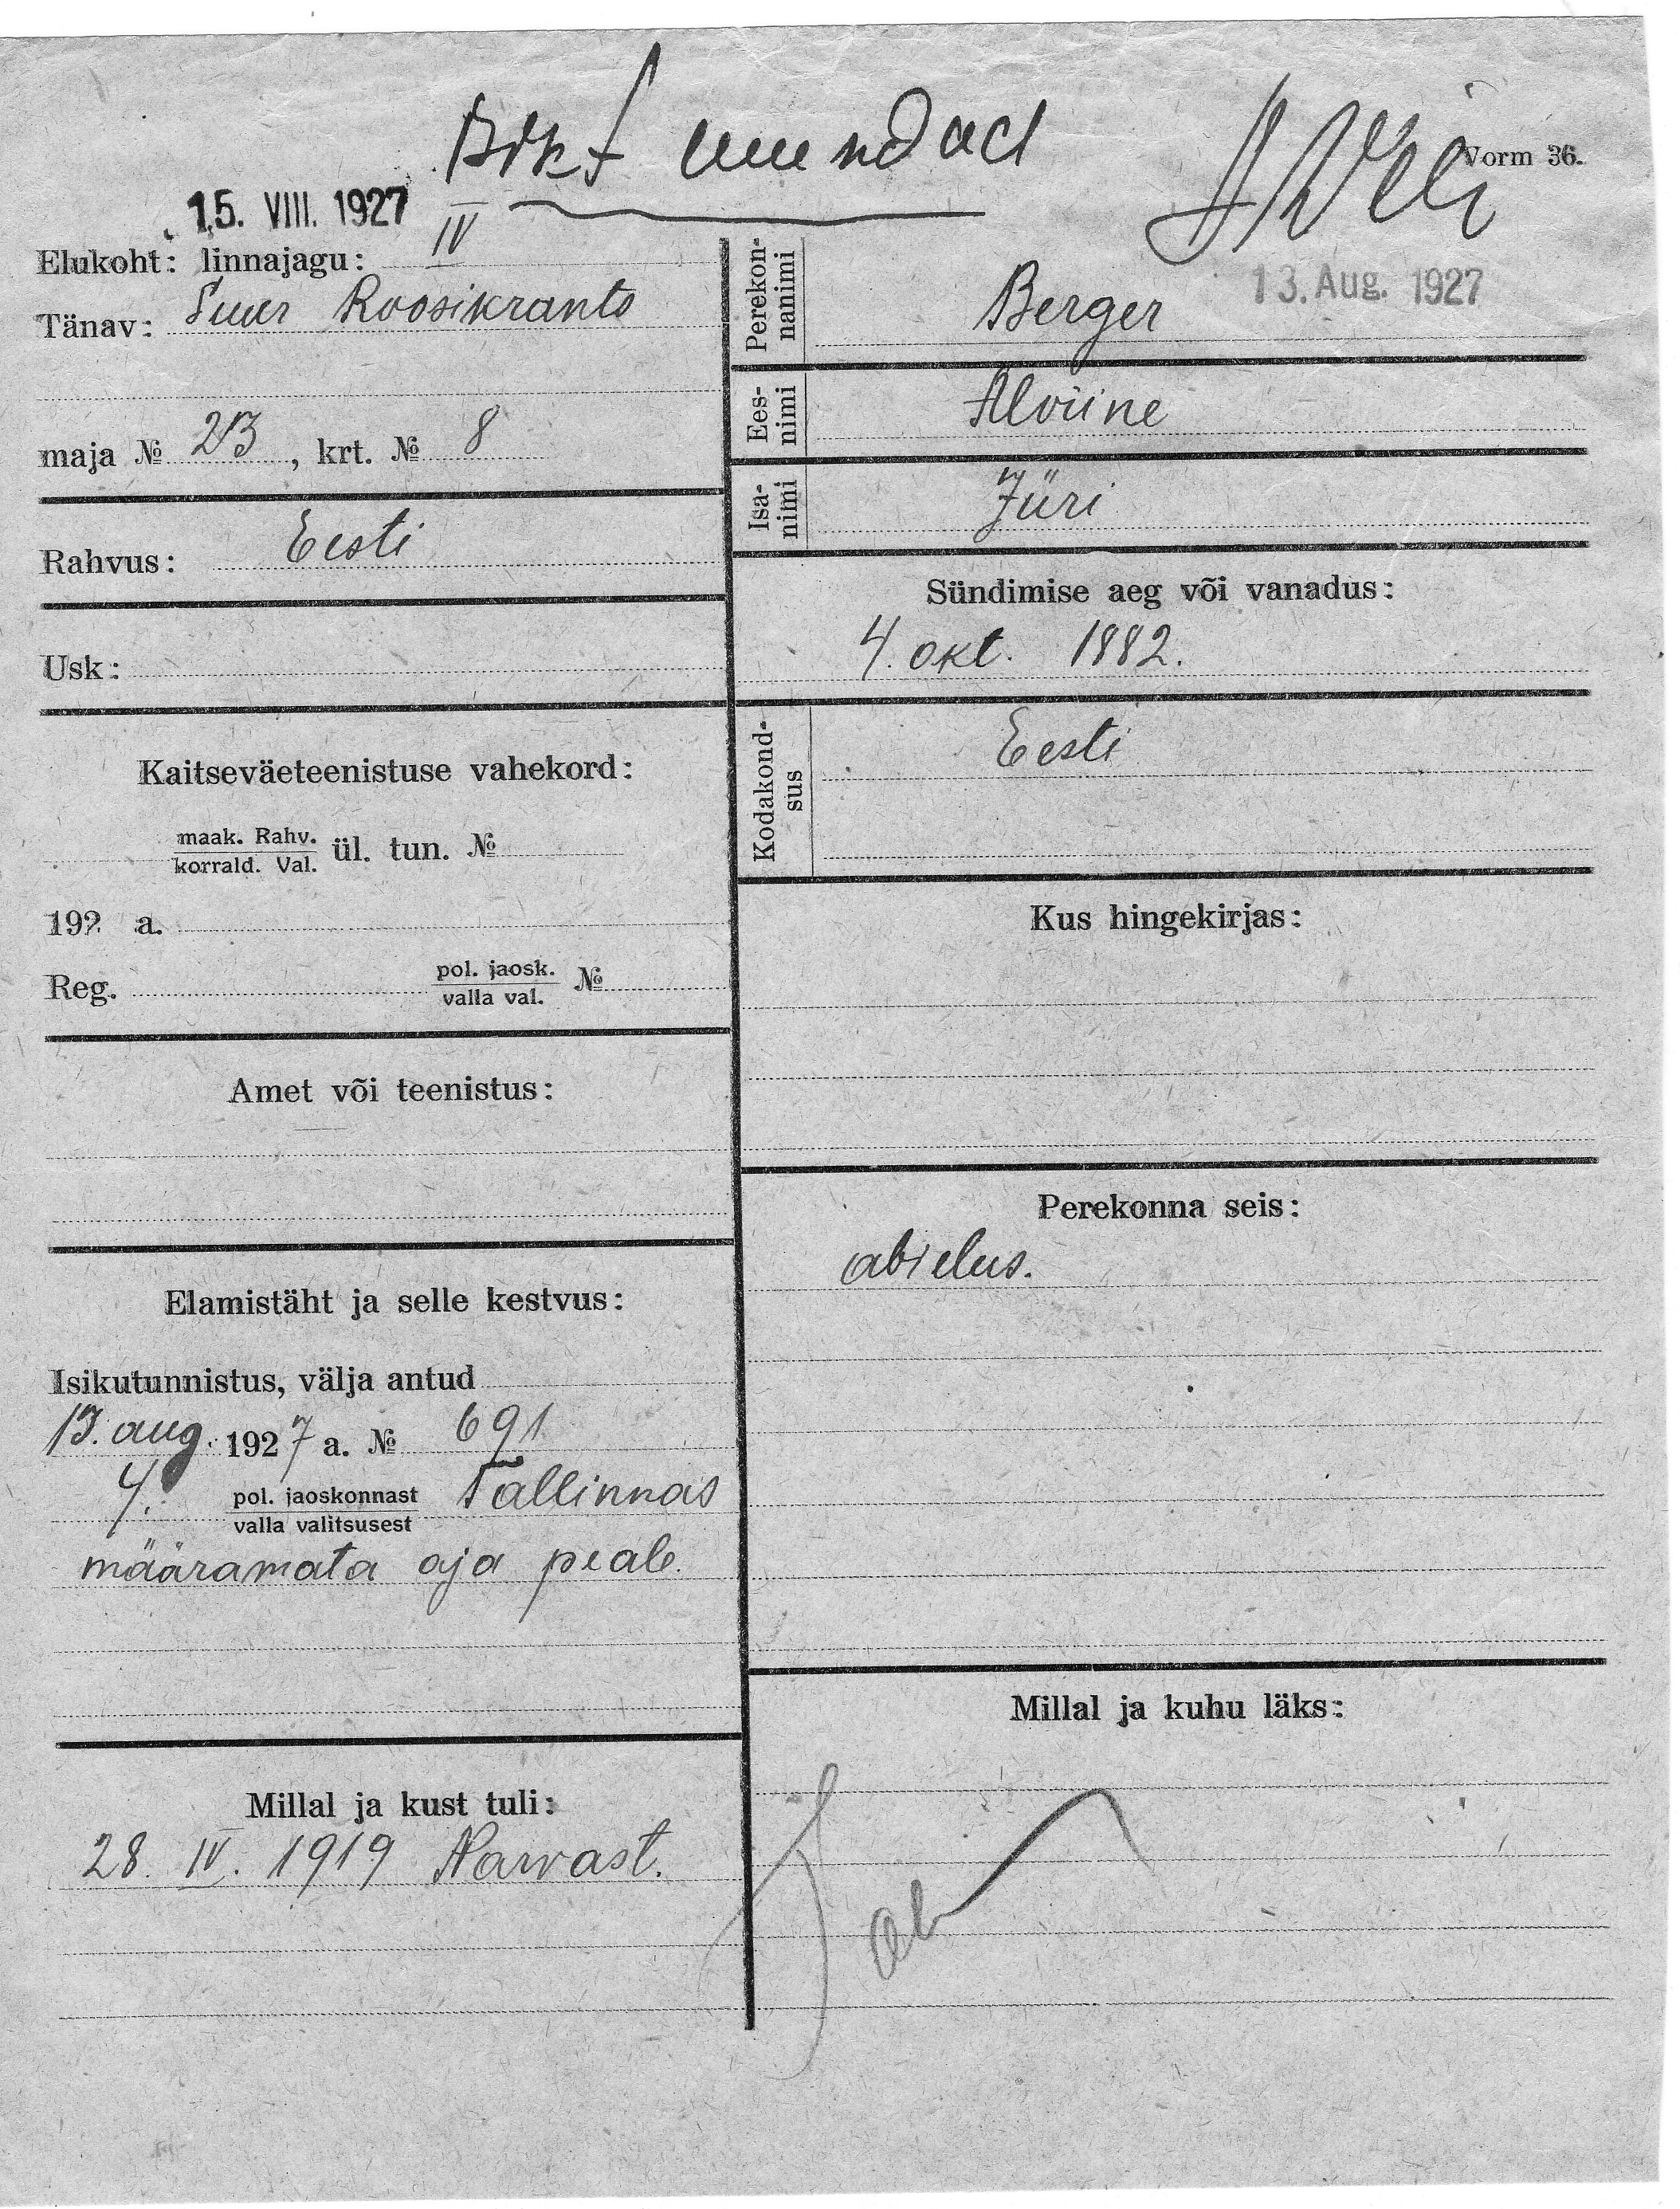 uuendad
Vorm 36.
15. VIII. 1927
Elukoht: linnajagu: IV
Tänav: Suur Roosikrants
maja № 23, krt. № 8
Rahvus: Eesti
Usk:
Kaitseväeteenistuse vahekord:
maak. Rahv.
korrald. Val.
ül. tun. №
192 a.
Reg.
pol. jaosk.
valla val.
№
Amet või teenistus:
Elamistäht ja selle kestvus:
Isikutunnistus, välja antud
13. aug. 1927 a. № 691
4. pol. jaoskonnast Tallinnas
valla valitsusest
määramata aja peale.
Millal ja kust tuli:
28. IV. 1919 Narvast.
13. Aug. 1927
Perekon-
nanimi
Berger
Ees-
nimi
Alviine
Isa-
nimi
Jüri
Sündimise aeg või vanadus:
4. okt. 1882.
Kodakond-
sus
Eesti
Kus hingekirjas:
Perekonna seis:
abielus.
Millal ja kuhu läks: